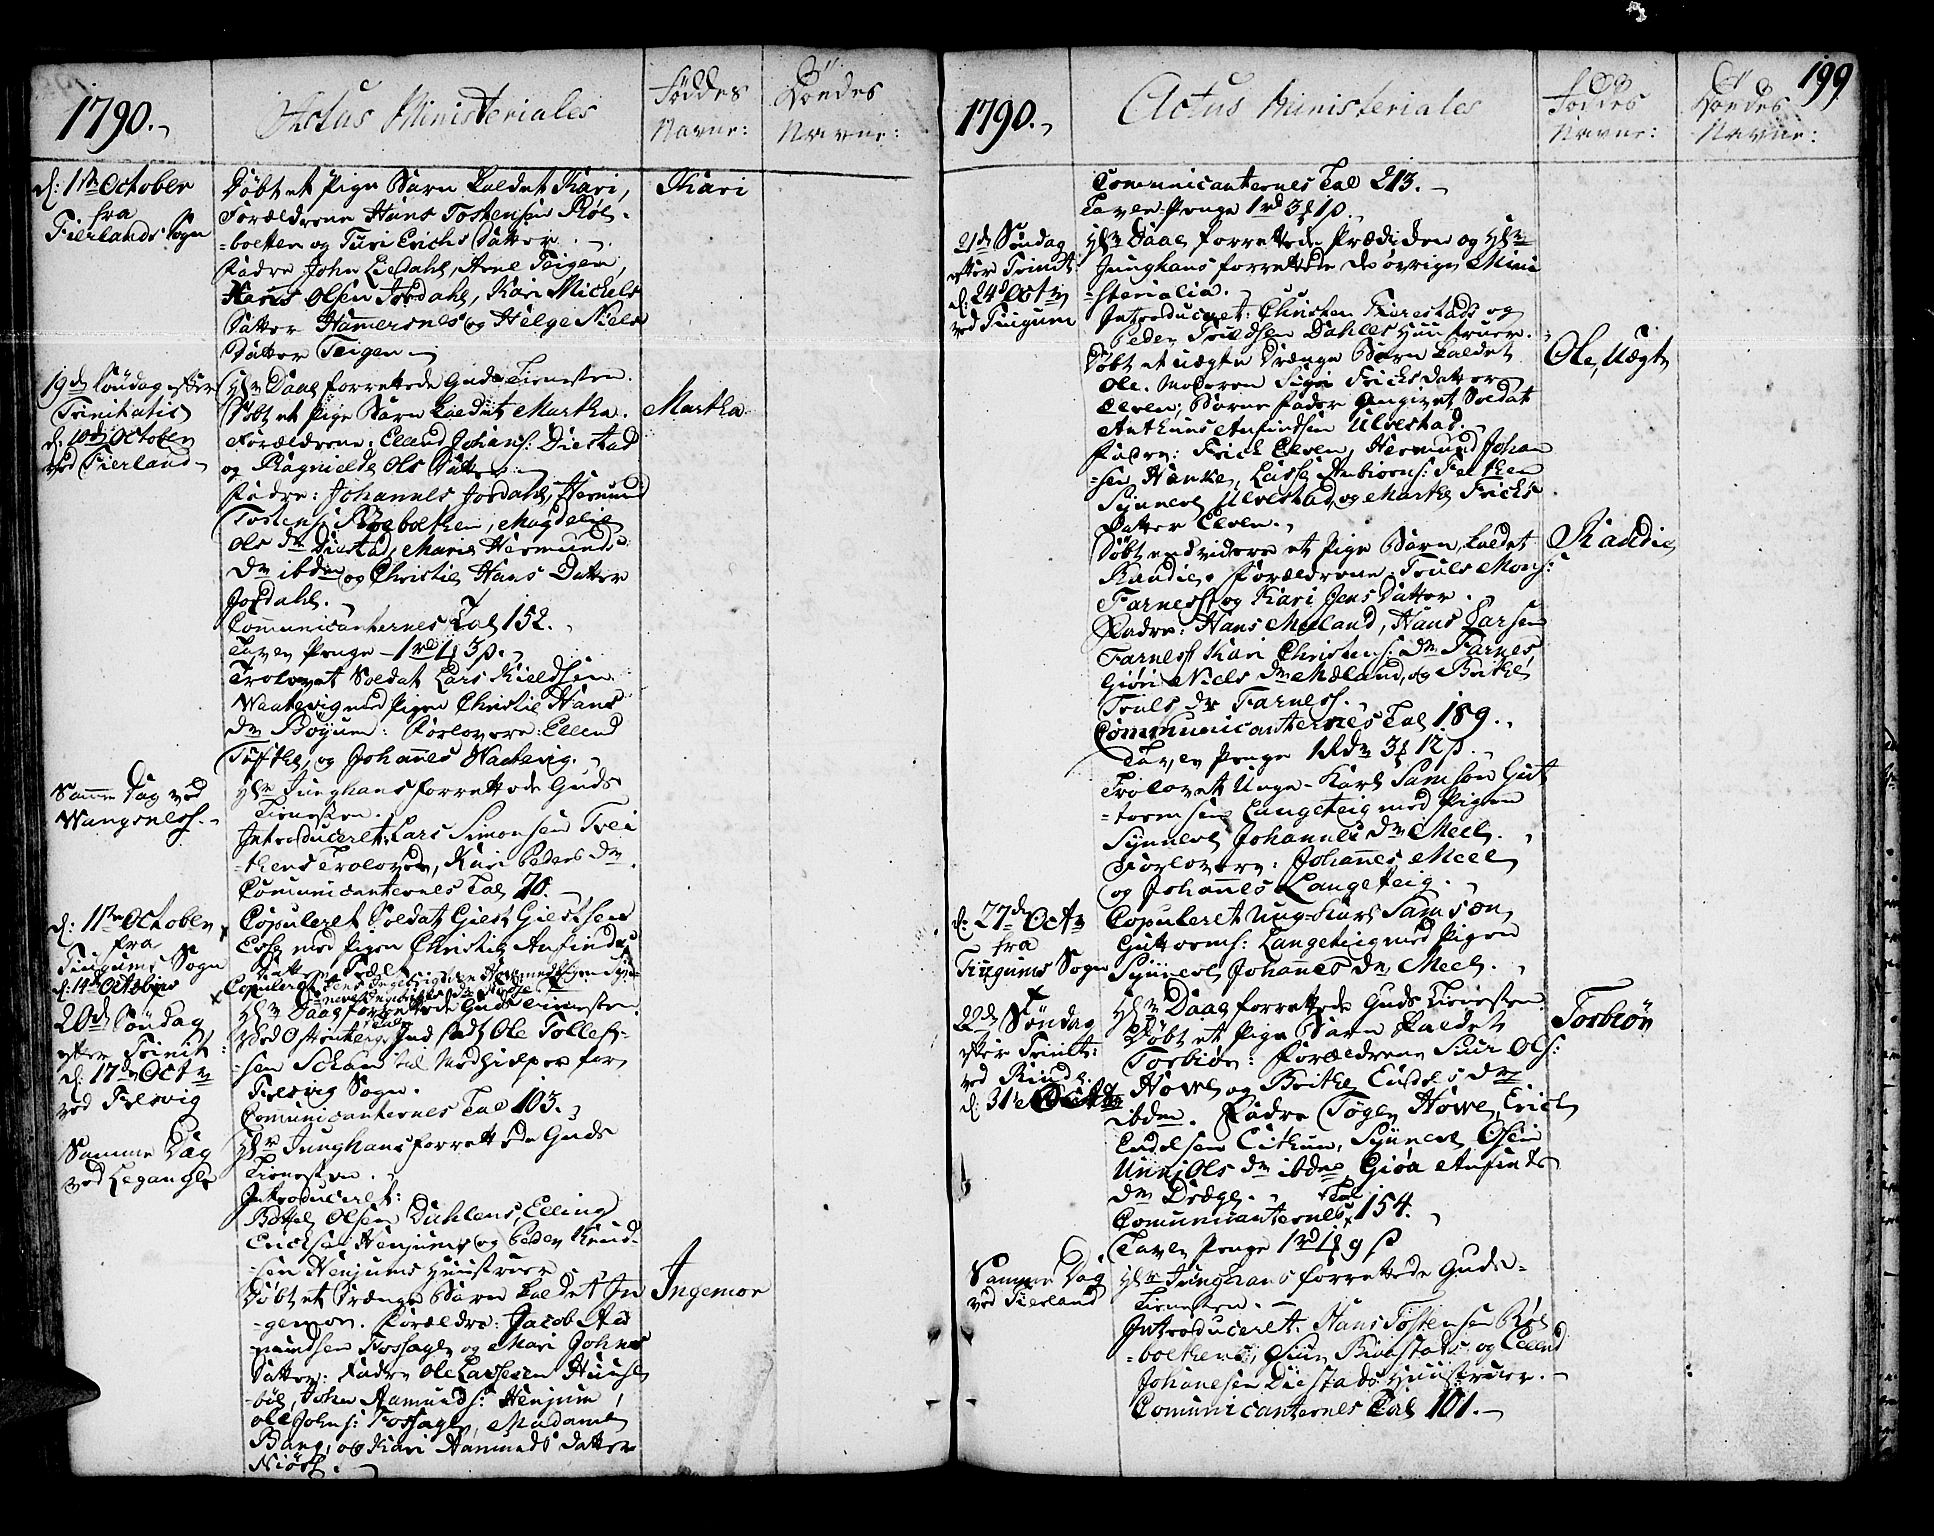 1790.
Actus Ministeriales
Føddes
Navne:
Døendes
Navne:
d: 1ste October
fra
Fierlands Sogn
Døbt et Pige Barn kaldet Kari,
Forældrene Hans Tostensen Røs-
-boetten og Turi Erichs Datter.
Fadre John Liedahl, Arne Teigen,
Hans Olsen Jordahl, Kari Michels
Datter Hamersnes og Helge Niels
Datter Teigen
Kari
19de Søndag efter
Trinitatis
d: 10de October
ved Fierland
Hr. Daae forrettede Guds Tienesten.
Døbt et Pige Barn kaldet Martha.
Forældrene: Ellend Johans: Distad
og Ragnielde Ols Datter.
Fadre: Johannes Jordahl, Hermund
Tostens: Bøeboethen, Magdelie
Ols dr Distad, Marie Hermunds
Dr ibdm og Christie Hans Datter
Jordahl.
Communicanternes Tal 152.
Tavle Penge 1rd 1 3s.
Trolovet Soldat Lars Kieldsen
Waatevig med Pigen Christie Hans
Dr Bøyum: Forlovere: Ellend
Tufthe, og Johannes Waatevig.
Martha
Samme Dag ved
Wangsness.
Hr Junghans forrettede Guds
Tienesten.
Introduceret: Lars Simonsen Trei
-thens Trolovede, Kari Peders Dr.
Communicanternes Tal 70.
d: 11te October
fra
Tiugums Sogn
d: 14de October
Copuleret Soldat Giest Giestsen
Esse med Pigen Christie Anfinds
Datter
Copuleret Jens Ingebrigtsen
20de Søndag
efter Trinit:
d: 17de Octr
ved Fresvig
Hr Daae forrettede Guds Tienesten.
Blev Ind sadt Ole Tollef-
-sen Schau til Medhielper for
Fresvig Sogn.
Communicanternes Tal 103.
Samme Dag
ved Leganger
Hr Junghans forrettede Guds
Tienesten.
Introduceret:
Botel Olsen Dahlens, Elling
Erichsen Henjums og Peder Knud-
-sen Henjums Huustruer.
Døbt et Drænge Barn kaldet In
-gemon. Forældre: Jacob Aa
-mundsen Fossage og Mari Johns
Datter: Fadre Ole Lassesen Huuse
-bøe, John Aamunds: Henjum,
Ole Johns: Fossage, Madame
Bang, og Kari Aamunds datter
Niøs.
Ingemon
199
1790.
Actus Ministeriales
Føddes
Navne:
Døendes
Navne:
Communicanternes Tal 213.
Tavle Penge 1rd 3 1s.
21de Søndag
efter Trinit:
d: 24de Octr
ved Tiugum
Hr Daae forrettede Prædiken og Hr
Junghans forrettede de øvrige Mini
-sterialia.
Introduceret: Christen Fierestads og
Peder Trulsen Dahles Huustruer.
Døbt et uægte Drænge Barn kaldet
Ole. Moderen Sigri Erichs datter
Elven, Barne Fader Angivet Soldat
Anthuns Anfindsen Ulvestad.
Fadre: Erich Elven, Hermund Johan
-sen Hanke, Lasse Anbiørns: Ferthen
Synneve Ulvestad og Marthe Erichs
Datter Elven.
Ole, Uægt
Døbt endvidere et Pige Barn kaldet
Randie. Forældrene Truls Mons:
Farness og Kari Jens Datter.
Fadre: Hans Meland, Hans Larsen
Farness Kari Christens: dr Farnes
Giøri Niels dr Mæland, og Brithe
Truls dr Farness.
Communicanternes Tal 189.
Tavle Penge 1Rdr 3 12s.
Trolovet Unge-Karl Samson Gut
-tormsen Langeteig med Pigen
Synneve Johannes Dr Meel.
Forlovere: Johannes Meel
og Johannes Langeteig.
Randie
d: 27de Octr
fra
Tiugums Sogn
Copuleret Ung-Karl Samson
Guttorms: Langeteig med Pigen
Synneve Johannes Dr Meel.
22de Søndag
efter Trinit:
ved Rinde.
d: 31te Octr
Hr Daae forrettede Guds Tienesten
Døbt et Pige Barn kaldet
Torbiør: Forældrene Siur Ols:
Howe og Brithe Endes dr
ibdm. Fadre Tøge Howe, Erich
Endesen Eithun, Synneve Olsen
Unni Ols dr ibdm Giøa Anfinds
dr Dræge.
Communicanternes Tal 154.
Tavle Penge 1rd 1 9 s
Torbiør
Samme Dag
ved Fierland
Hr Junghans forrettede Guds-
Tienesten.
Introduceret: Hans Tostensen Røs
-boethens, Siur Broestads og Ellend
Johannesen Distads Huustruer.
Communicanternes Tal 101.